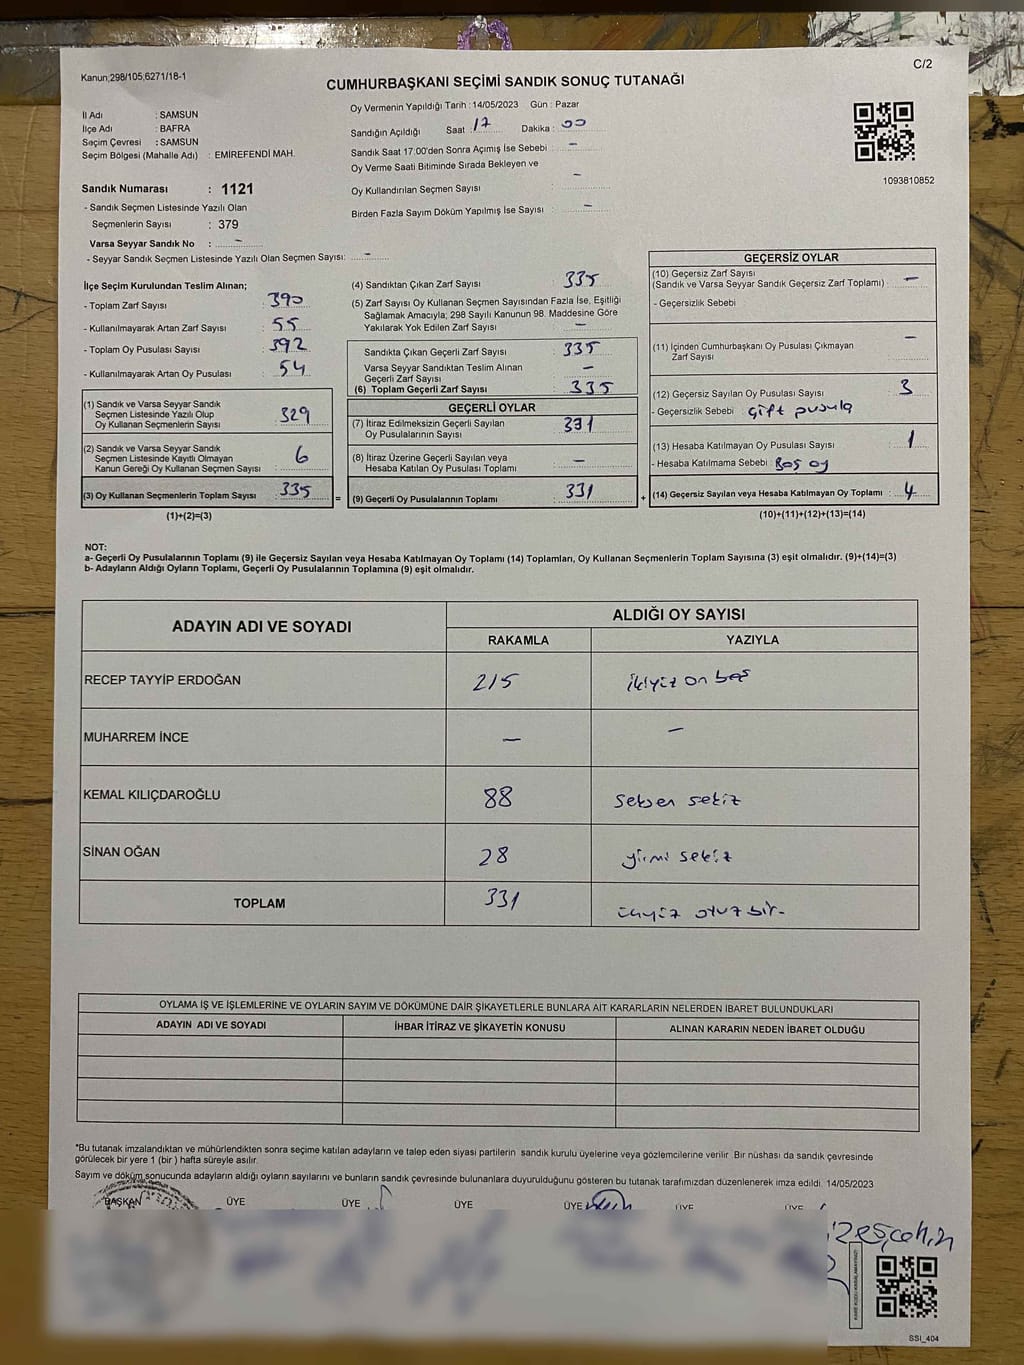 Kanun;298/105;6271/18-1
C/2
CUMHURBAŞKANI SEÇİMİ SANDIK SONUÇ TUTANAĞI
İl Adı : SAMSUN
İlçe Adı : BAFRA
Seçim Çevresi : SAMSUN
Seçim Bölgesi (Mahalle Adı) : EMİREFENDİ MAH.
Oy Vermenin Yapıldığı Tarih : 14/05/2023 Gün : Pazar
Sandığın Açıldığı Saat : 17 Dakika : 00
Sandık Saat 17:00'den Sonra Açımış İse Sebebi : -
Oy Verme Saati Bitiminde Sırada Bekleyen ve
Oy Kullandırılan Seçmen Sayısı : -
Birden Fazla Sayım Döküm Yapılmış İse Sayısı : -
1093810852
Sandık Numarası : 1121
- Sandık Seçmen Listesinde Yazılı Olan
Seçmenlerin Sayısı : 379
Varsa Seyyar Sandık No : -
- Seyyar Sandık Seçmen Listesinde Yazılı Olan Seçmen Sayısı: -
İlçe Seçim Kurulundan Teslim Alınan;
- Toplam Zarf Sayısı : 390
- Kullanılmayarak Artan Zarf Sayısı : 55
- Toplam Oy Pusulası Sayısı : 392
- Kullanılmayarak Artan Oy Pusulası : 54
(1) Sandık ve Varsa Seyyar Sandık
Seçmen Listesinde Yazılı Olup
Oy Kullanan Seçmenlerin Sayısı : 329
(2) Sandık ve Varsa Seyyar Sandık
Seçmen Listesinde Kayıtlı Olmayan
Kanun Gereği Oy Kullanan Seçmen Sayısı : 6
(3) Oy Kullanan Seçmenlerin Toplam Sayısı : 335
(1)+(2)=(3)
(4) Sandıktan Çıkan Zarf Sayısı : 335
(5) Zarf Sayısı Oy Kullanan Seçmen Sayısından Fazla İse, Eşitliği
Sağlamak Amacıyla; 298 Sayılı Kanunun 98. Maddesine Göre
Yakılarak Yok Edilen Zarf Sayısı : -
Sandıkta Çıkan Geçerli Zarf Sayısı : 335
Varsa Seyyar Sandıktan Teslim Alınan
Geçerli Zarf Sayısı : -
(6) Toplam Geçerli Zarf Sayısı : 335
GEÇERLİ OYLAR
(7) İtiraz Edilmeksizin Geçerli Sayılan
Oy Pusulalarının Sayısı : 331
(8) İtiraz Üzerine Geçerli Sayılan veya
Hesaba Katılan Oy Pusulası Toplamı : -
= (9) Geçerli Oy Pusulalarının Toplamı : 331
GEÇERSİZ OYLAR
(10) Geçersiz Zarf Sayısı
(Sandık ve Varsa Seyyar Sandık Geçersiz Zarf Toplamı) : -
- Geçersizlik Sebebi
(11) İçinden Cumhurbaşkanı Oy Pusulası Çıkmayan
Zarf Sayısı : -
(12) Geçersiz Sayılan Oy Pusulası Sayısı : 3
- Geçersizlik Sebebi Çift pusula
(13) Hesaba Katılmayan Oy Pusulası Sayısı : 1
- Hesaba Katılmama Sebebi Boş oy
+ (14) Geçersiz Sayılan veya Hesaba Katılmayan Oy Toplamı : 4
(10)+(11)+(12)+(13)=(14)
NOT:
a- Geçerli Oy Pusulalarının Toplamı (9) ile Geçersiz Sayılan veya Hesaba Katılmayan Oy Toplamı (14) Toplamları, Oy Kullanan Seçmenlerin Toplam Sayısına (3) eşit olmalıdır. (9)+(14)=(3)
b- Adayların Aldığı Oyların Toplamı, Geçerli Oy Pusulalarının Toplamına (9) eşit olmalıdır.
ADAYIN ADI VE SOYADI
ALDIĞI OY SAYISI
RAKAMLA YAZIYLA
RECEP TAYYİP ERDOĞAN 215 ikiyüz on beş
MUHARREM İNCE - -
KEMAL KILIÇDAROĞLU 88 seksen sekiz
SİNAN OĞAN 28 yirmi sekiz
TOPLAM 331 üçyüz otuz bir-
OYLAMA İŞ VE İŞLEMLERİNE VE OYLARIN SAYIM VE DÖKÜMÜNE DAİR ŞİKAYETLERLE BUNLARA AİT KARARLARIN NELERDEN İBARET BULUNDUKLARI
ADAYIN ADI VE SOYADI İHBAR İTİRAZ VE ŞİKAYETİN KONUSU ALINAN KARARIN NEDEN İBARET OLDUĞU
*Bu tutanak imzalandıktan ve mühürlendikten sonra seçime katılan adayların ve talep eden siyasi partilerin sandık kurulu üyelerine veya gözlemcilerine verilir. Bir nüshası da sandık çevresinde
görülecek bir yere 1 (bir ) hafta süreyle asılır.
Sayım ve döküm sonucunda adayların aldığı oyların sayılarını ve bunların sandık çevresinde bulunanlara duyurulduğunu gösteren bu tutanak tarafımızdan düzenlenerek imza edildi. 14/05/2023
BAŞKAN ÜYE ÜYE ÜYE ÜYE ÜYE ÜYE
SSI_404